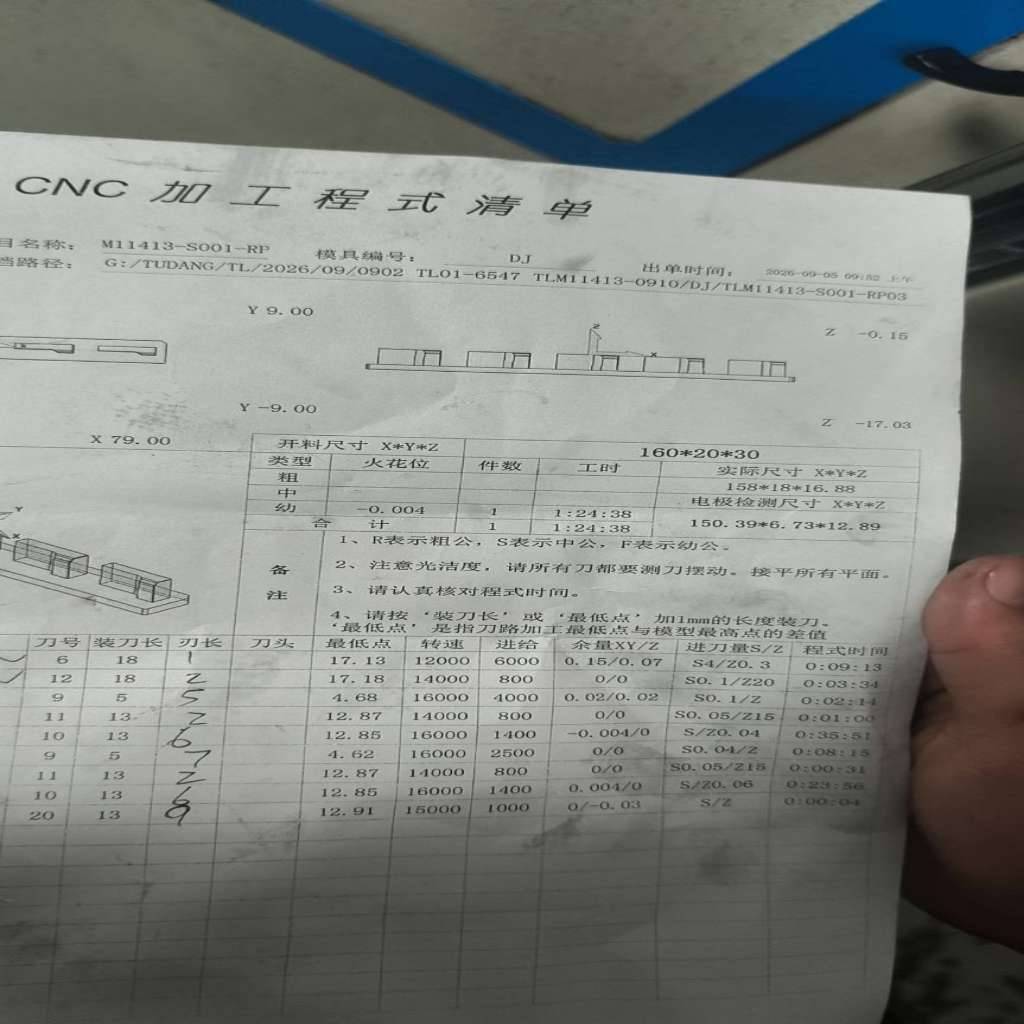 CNC 加工程式清单
目名称： M11413-S001-RP 模具编号： DJ 出单时间： 2026-09-05 09:52 上午
档路径： G:/TUDANG/TL/2026/09/0902 TL01-6547 TLM11413-0910/DJ/TLM11413-S001-RP03
Y 9.00
Z -0.15
Z
X
Y -9.00
Z -17.03
X 79.00
开料尺寸 X*Y*Z 160*20*30
类型 火花位 件数 工时 实际尺寸 X*Y*Z
粗 158*18*16.88
中 电极检测尺寸 X*Y*Z
幼 -0.004 1 1:24:38 150.39*6.73*12.89
合 计 1 1:24:38
Y
X
备注
1、R表示粗公，S表示中公，F表示幼公。
2、注意光洁度，请所有刀都要测刀摆动。接平所有平面。
3、请认真核对程式时间。
4、请按‘装刀长’或‘最低点’加1mm的长度装刀。
‘最低点’是指刀路加工最低点与模型最高点的差值
刀号 装刀长 刃长 刀头 最低点 转速 进给 余量XY/Z 进刀量S/Z 程式时间
6 18 1 17.13 12000 6000 0.15/0.07 S4/Z0.3 0:09:13
12 18 2 17.18 14000 800 0/0 S0.1/Z20 0:03:34
9 5 5 4.68 16000 4000 0.02/0.02 S0.1/Z 0:02:14
11 13 2 12.87 14000 800 0/0 S0.05/Z15 0:01:00
10 13 6 12.85 16000 1400 -0.004/0 S/Z0.04 0:35:51
9 5 7 4.62 16000 2500 0/0 S0.04/Z 0:08:15
11 13 2 12.87 14000 800 0/0 S0.05/Z15 0:00:31
10 13 12.85 16000 1400 0.004/0 S/Z0.06 0:23:56
20 13 9 12.91 15000 1000 0/-0.03 S/Z 0:00:04